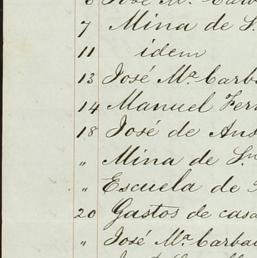 6 José Mª Carb
7 Mina de S
11 idem
13 José Mª Carba
14 Manuel Fern
18 José de Ans
„ Mina de Sn
„ Escuela de
20 Gastos de casa
„ José Mª Carba